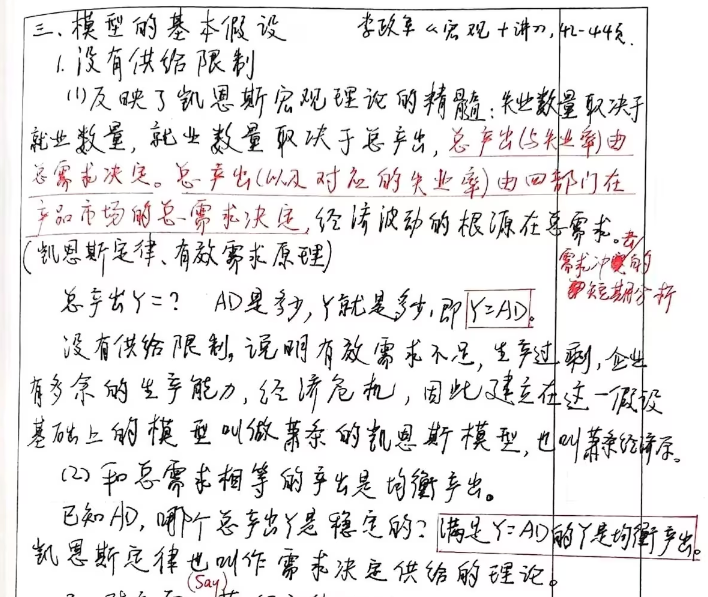 三、模型的基本假设 李政军《宏观十讲》,42-44页.
1.没有供给限制
(1)反映了凯恩斯宏观理论的精髓:失业数量取决于
就业数量,就业数量取决于总产出,总产出(与失业率)由
总需求决定。总产出(以及对应的失业率)由四部门在
产品市场的总需求决定,经济波动的根源在总需求。
(凯恩斯定律、有效需求原理)
需求冲突的
短期分析
总产出Y=? AD是多少,Y就是多少,即Y=AD。
没有供给限制,说明有效需求不足,生产过剩,企业
有多余的生产能力,经济危机,因此建立在这一假设
基础上的模型叫做萧条的凯恩斯模型,也叫萧条经济学。
(2)和总需求相等的产出是均衡产出。
已知AD,哪个总产出Y是稳定的?满足Y=AD的Y是均衡产出。
凯恩斯定律也叫作需求决定供给的理论。
(Say)